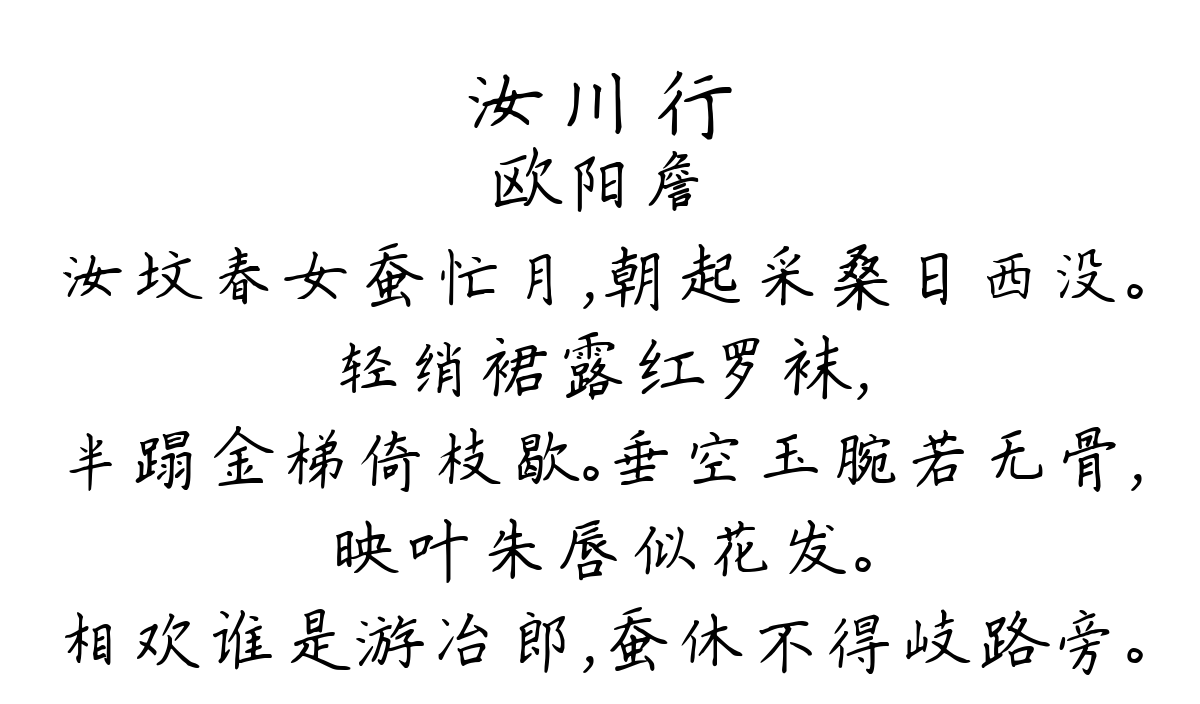 汝川行
欧阳詹
汝坟春女蚕忙月,朝起采桑日西没。
轻绡裙露红罗袜,
半蹋金梯倚枝歇。垂空玉腕若无骨,
映叶朱唇似花发。
相欢谁是游冶郎,蚕休不得岐路旁。